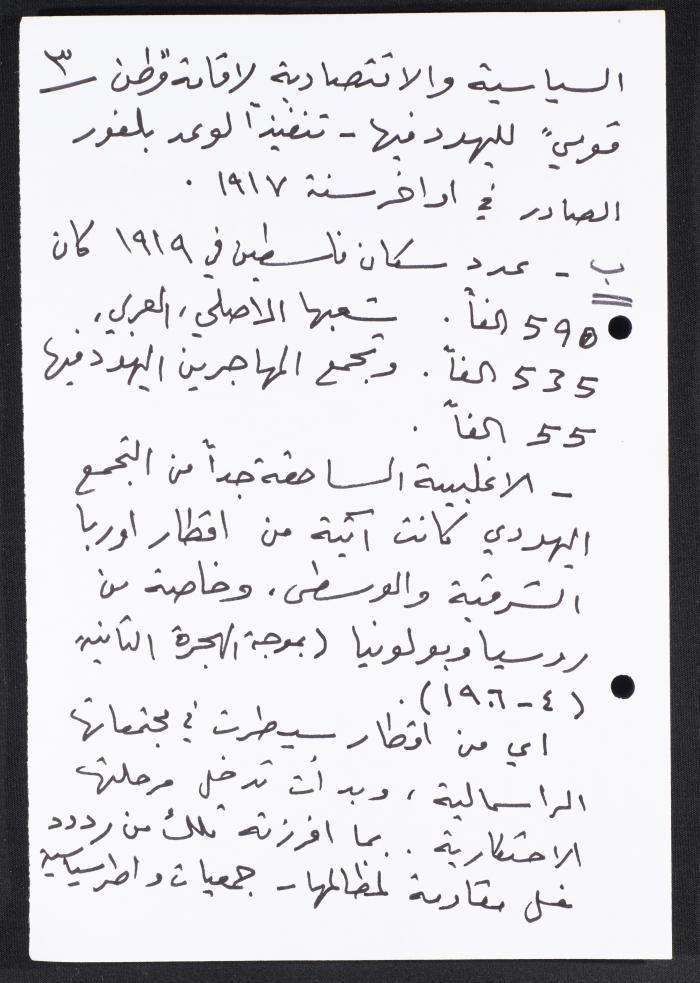 السياسية والاقتصادية لاقامة وطن ٣
قوميّ لليهود فيها - تنفيذاً لوعد بلفور
الصادر في اواخر سنة ١٩١٧ .
ب - عدد سكان فلسطين في ١٩١٩ كان
590 الفاً . شعبها الاصلي، العربي،
535 الفاً . وتجمع المهاجرين اليهود فيها
55 الفاً .
- الاغلبية الساحقة جداً من التجمع
اليهودي كانت آتية من اقطار اوربا
الشرقية والوسطى، وخاصة من
روسيا وبولونيا (بموجة الهجرة الثانية
(٤ - ١٩٠٦) .
اي من اقطار سيطرت في مجتمعاتها
الراسمالية، وبدأت تدخل مرحلتها
الاحتكارية . بما افرزته تلك من ردود
فعل مقاومة لمظالمها - جمعيات واطر سياسية